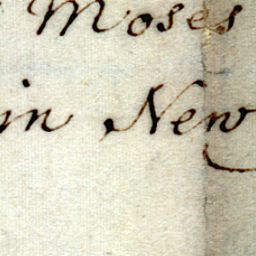 Moses
in New